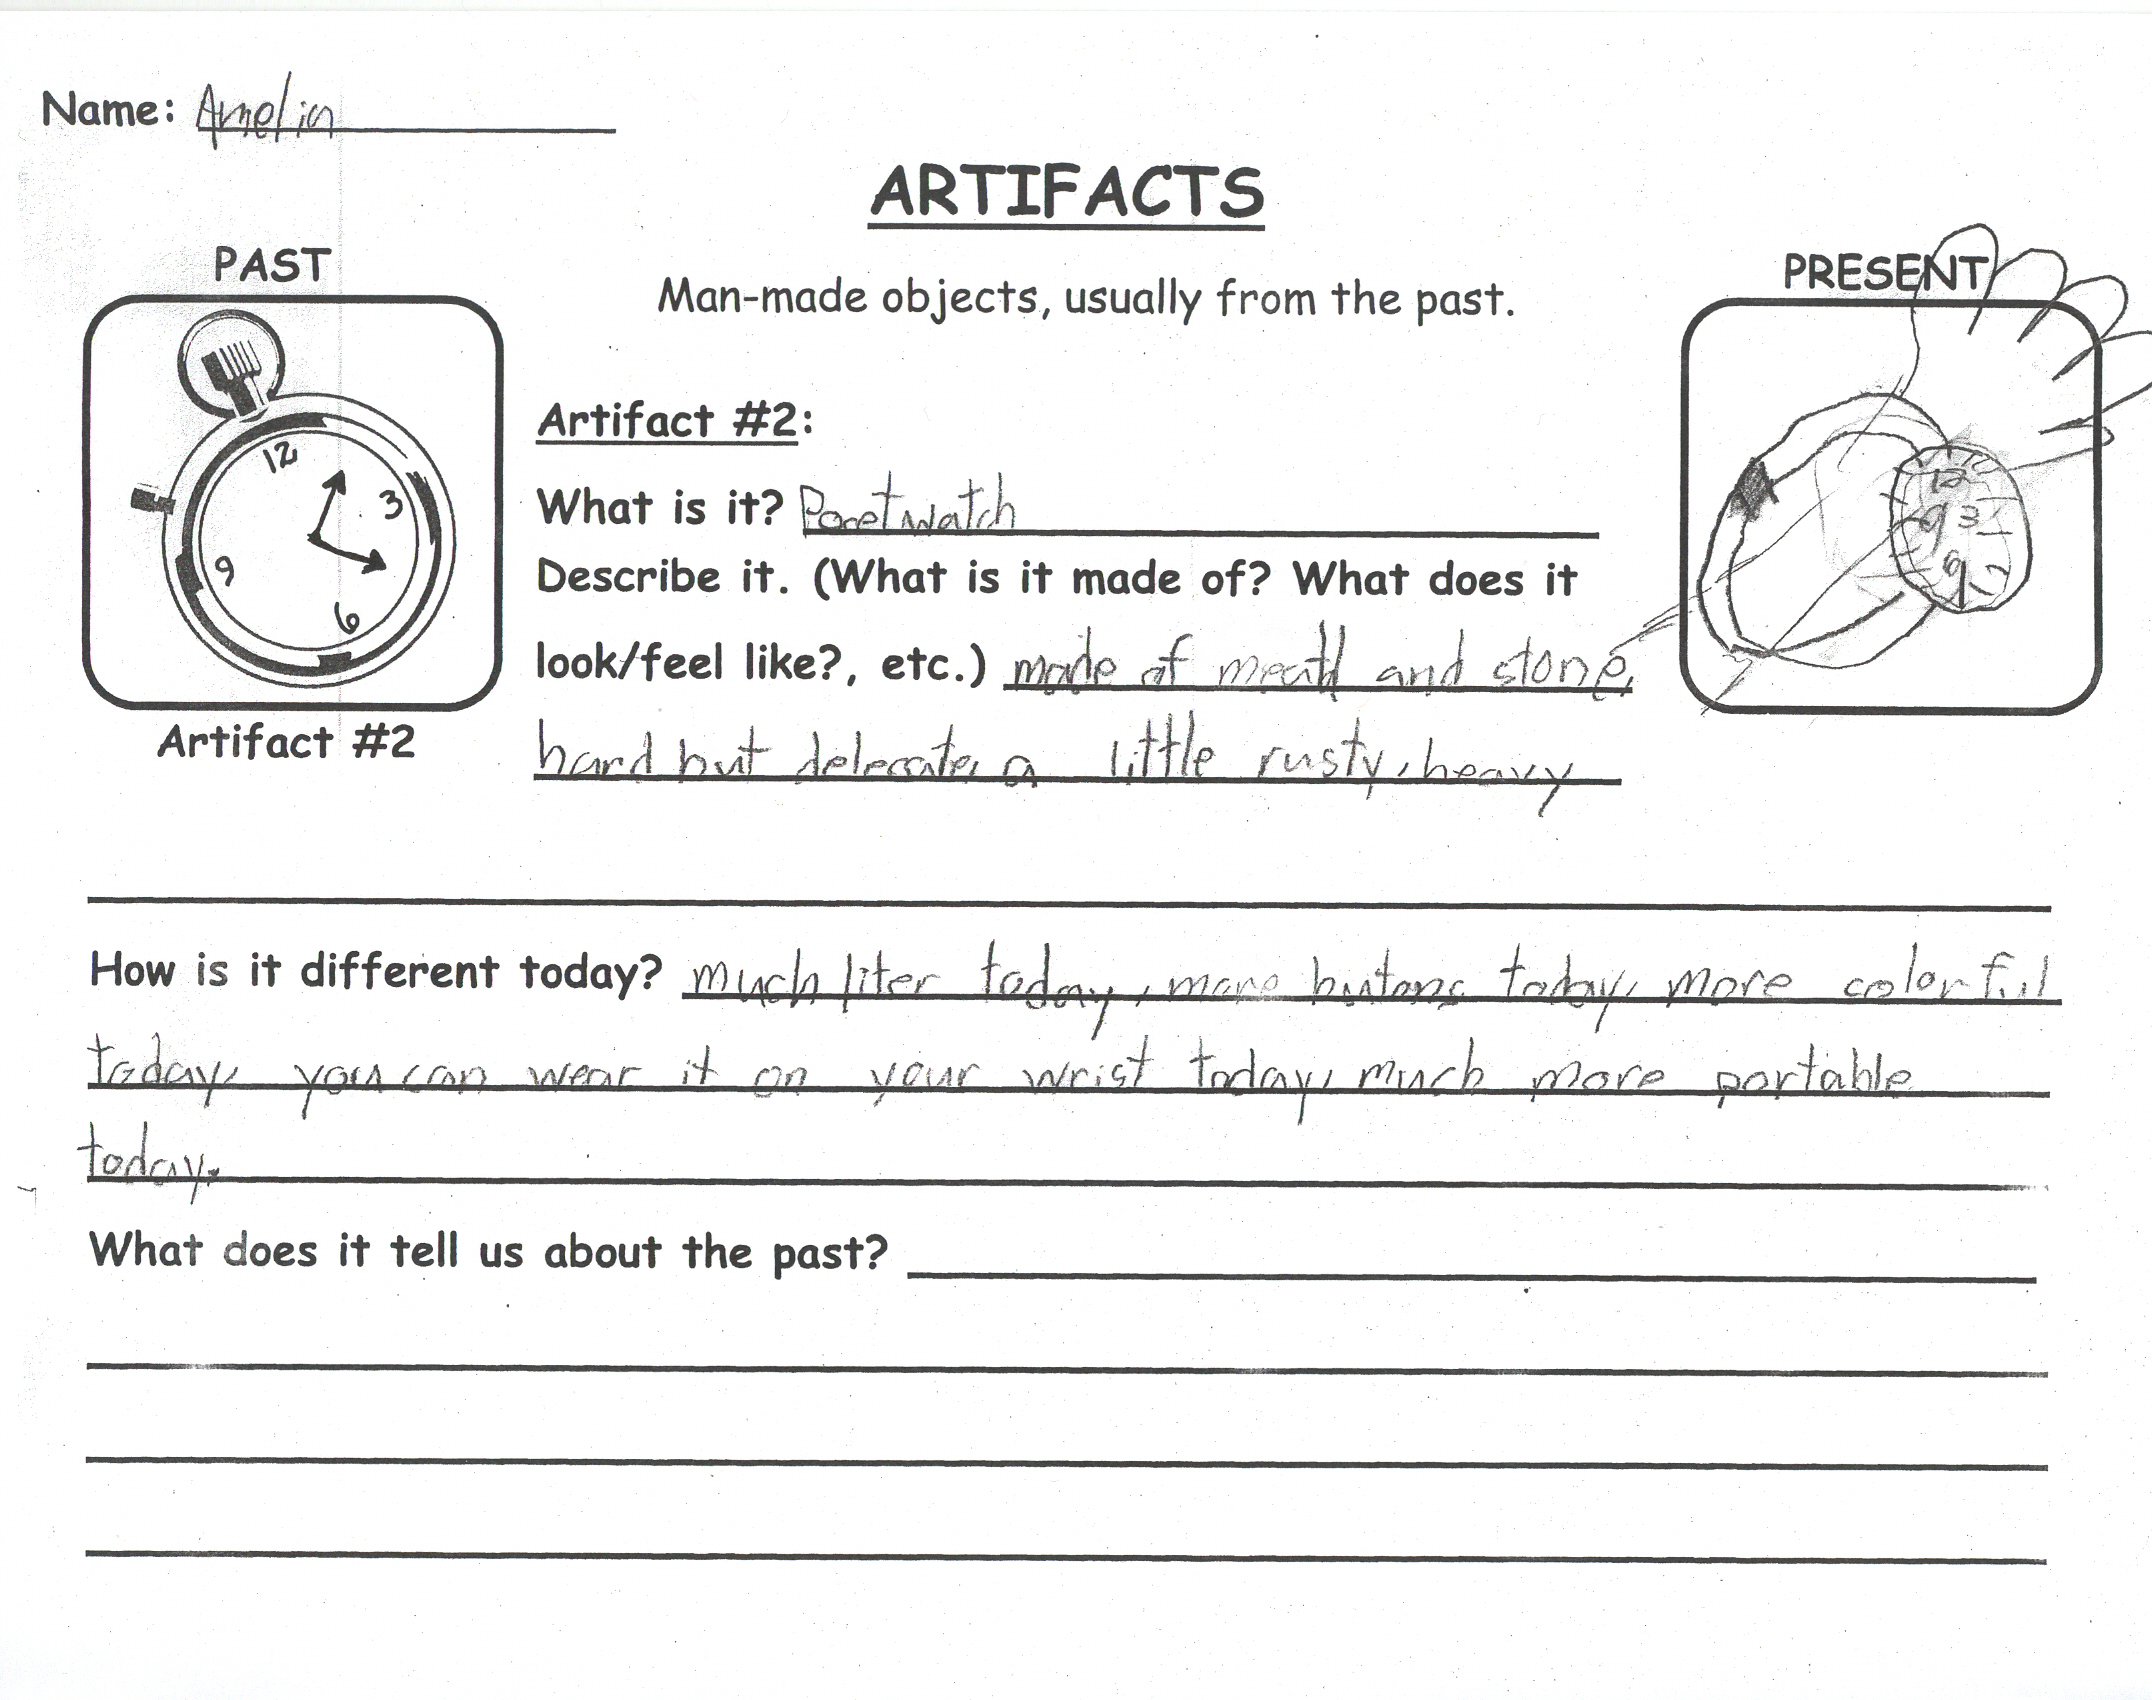 Name: Amelia
ARTIFACTS
PAST
PRESENT
Man-made objects, usually from the past.
12
3
6
9
12
3
6
9
Artifact #2:
What is it? Pocetwatch
Describe it. (What is it made of? What does it
look/feel like?, etc.) made of meatl and stone,
hard but delecate, a little rusty, heavy
Artifact #2
How is it different today? much liter today, more butons today, more colorful
today, you can wear it on your wrist today, much more portable
today.
What does it tell us about the past?